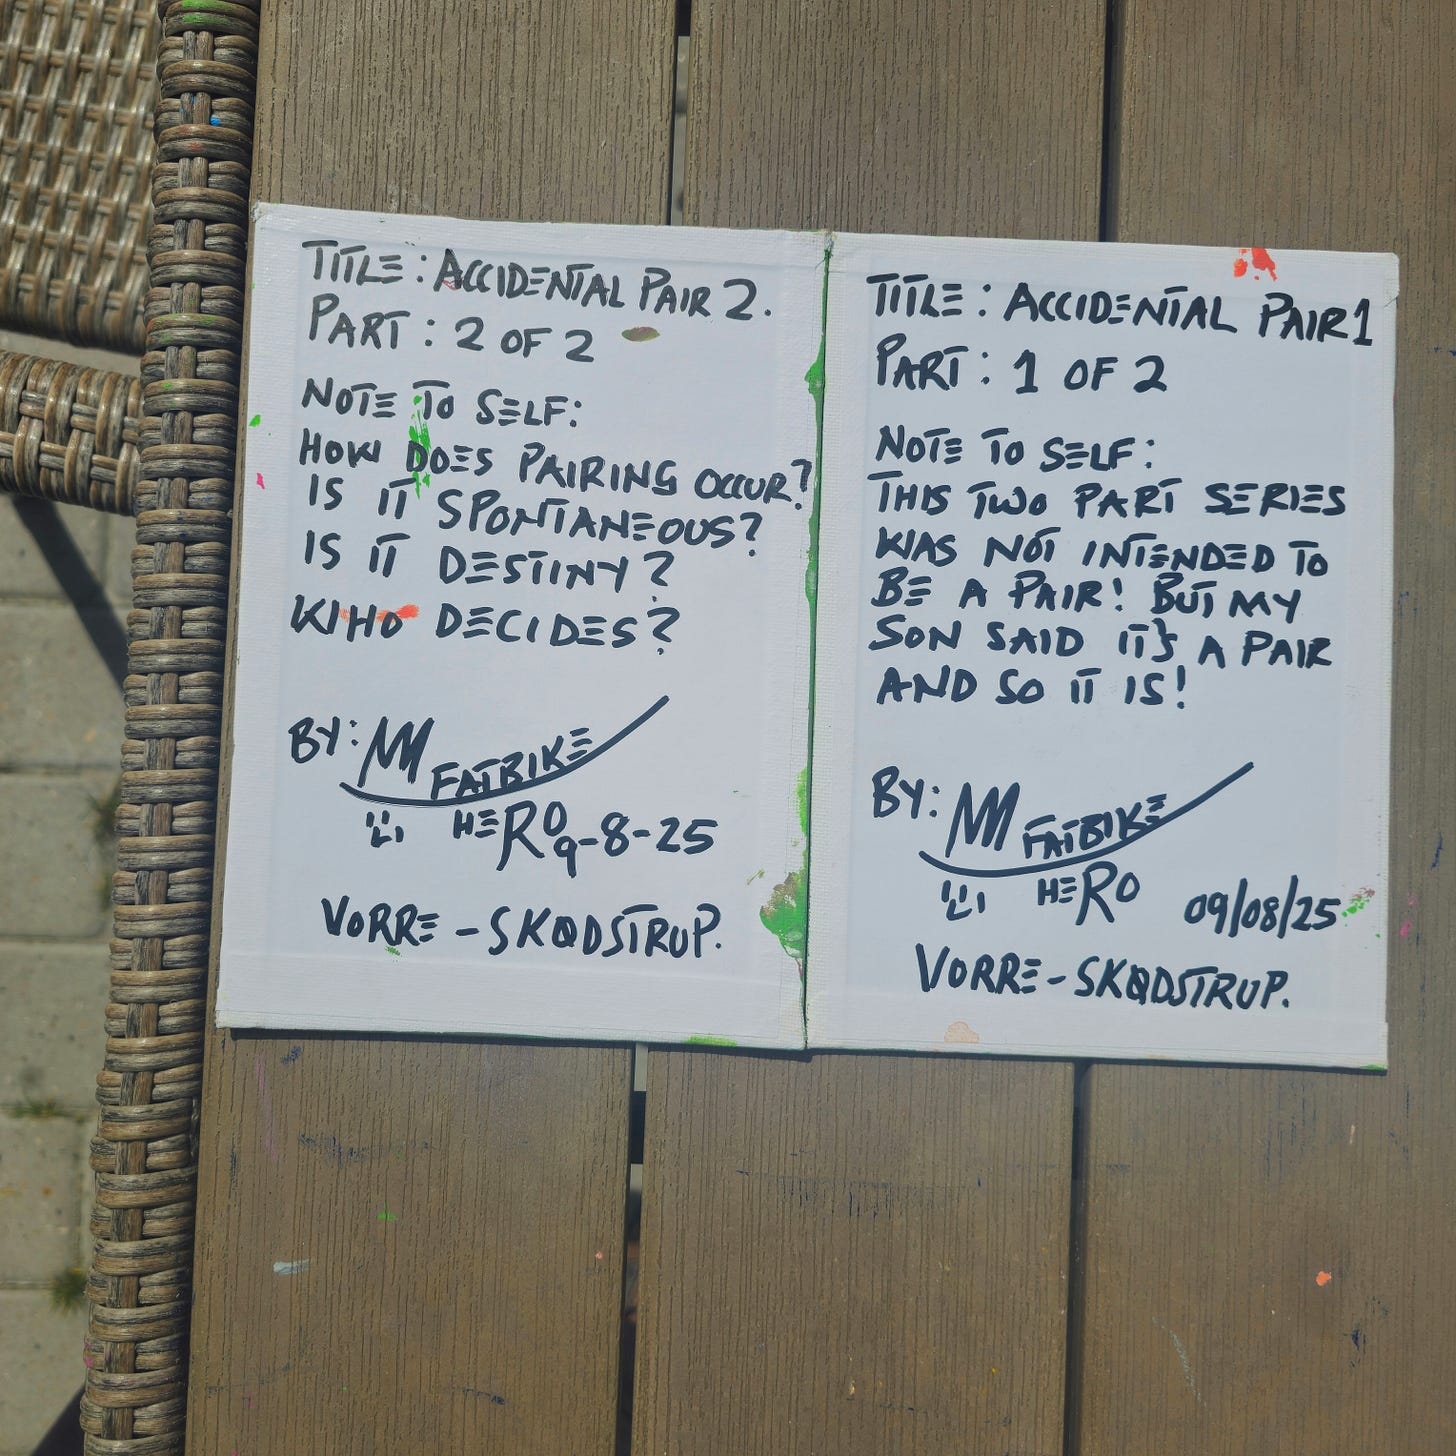 TITLE: ACCIDENTAL PAIR 2.
PART: 2 OF 2
NOTE TO SELF:
HOW DOES PAIRING OCCUR?
IS IT SPONTANEOUS?
IS IT DESTINY?
WHO DECIDES?
BY: FATBIKE
HERO 9-8-25
VORRE-SKØDSTRUP.
TITLE: ACCIDENTAL PAIR 1
PART: 1 OF 2
NOTE TO SELF:
THIS TWO PART SERIES
WAS NOT INTENDED TO
BE A PAIR! BUT MY
SON SAID IT'S A PAIR
AND SO IT IS!
BY: FATBIKE
HERO 09/08/25
VORRE-SKØDSTRUP.